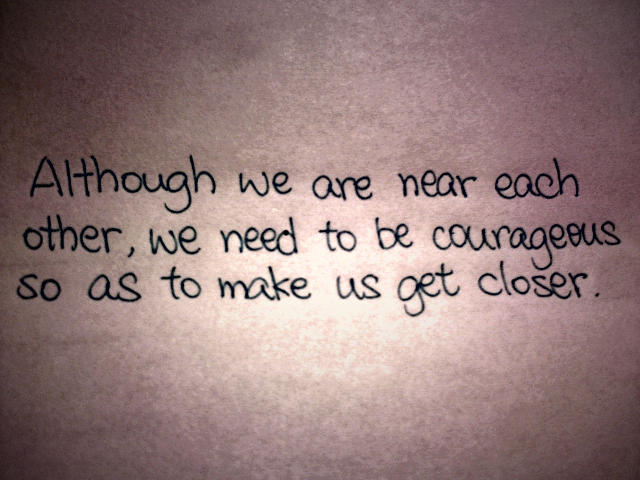 Although we are near each
other, we need to be courageous
so as to make us get closer.